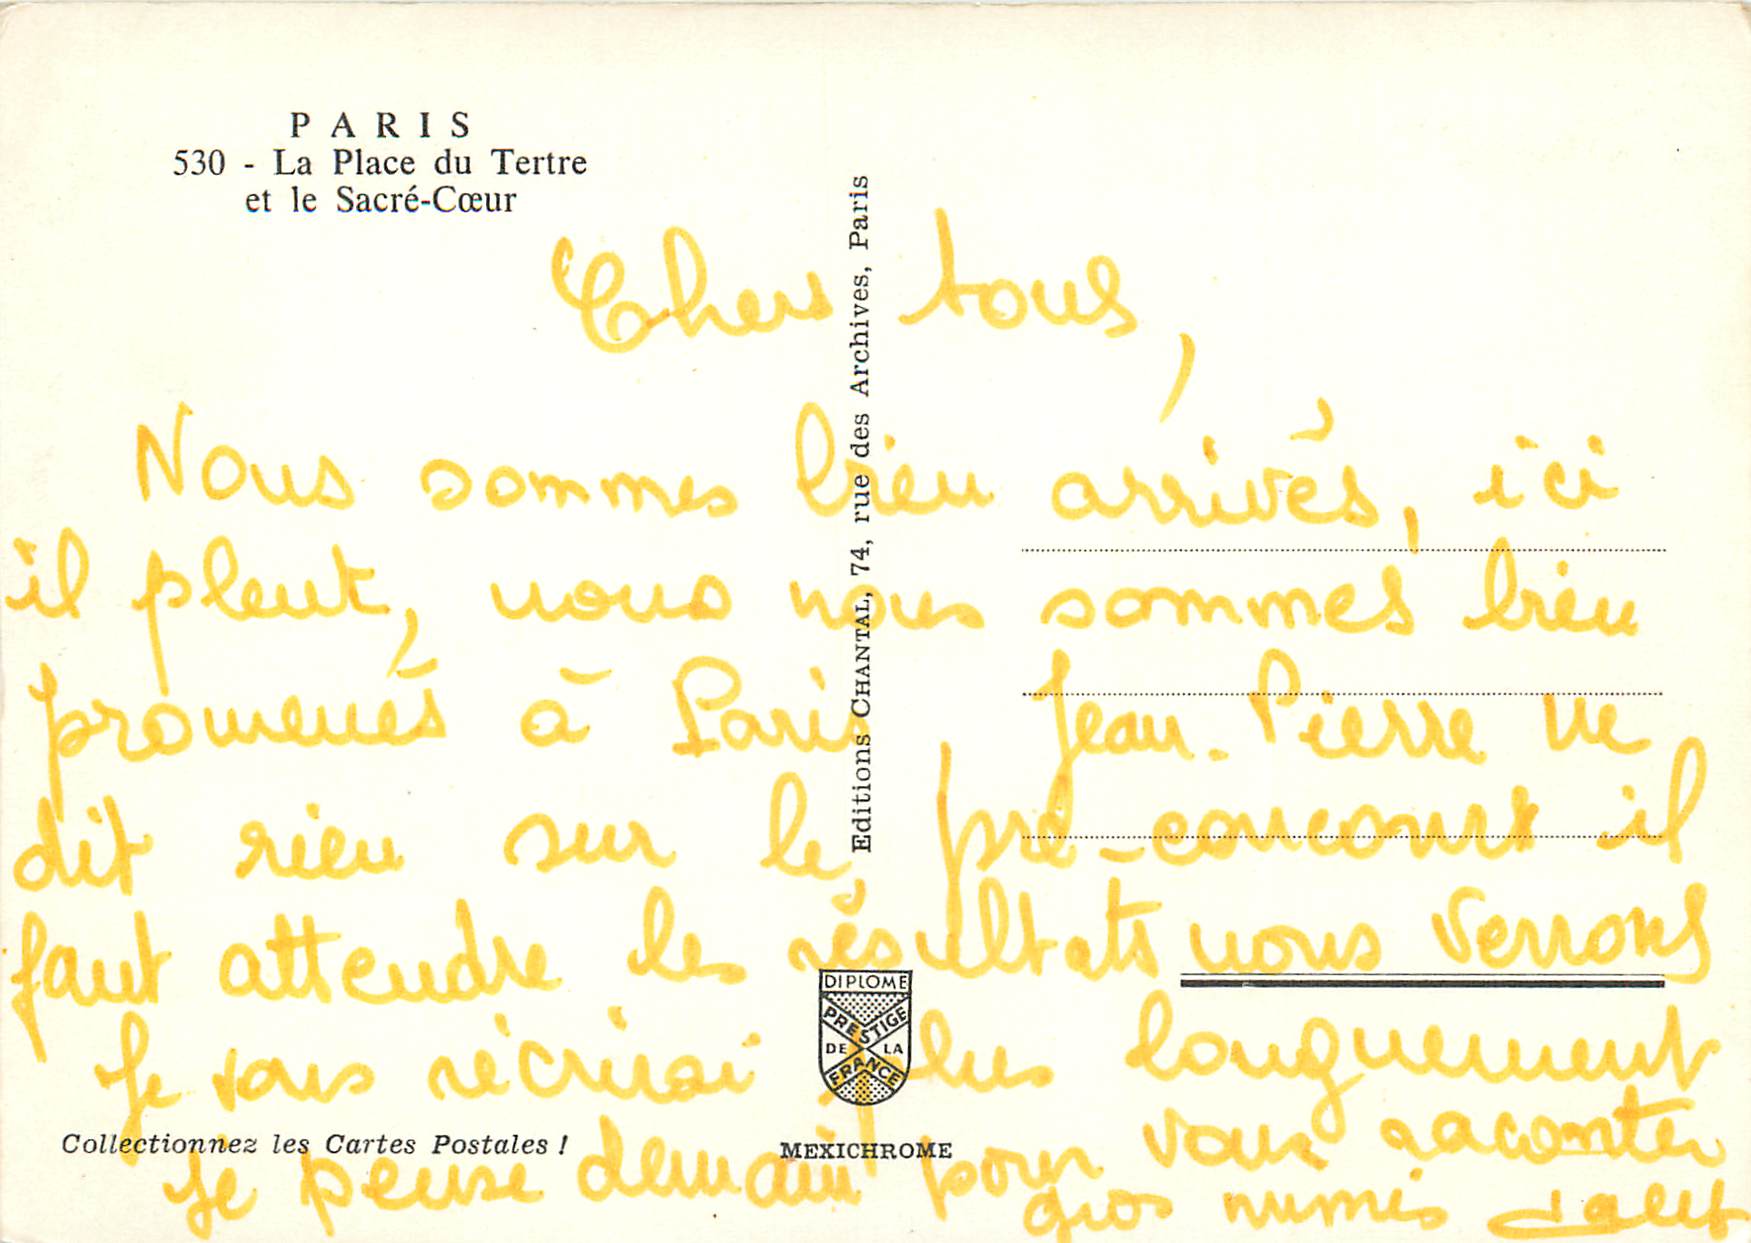 PARIS
530 - La Place du Tertre
et le Sacré-Cœur
Editions CHANTAL, 74, rue des Archives, Paris
Chers tous,
Nous sommes bien arrivés, ici
il pleut, nous nous sommes bien
promenés à Paris Jean-Pierre ne
dit rien sur le pré-concours il
faut attendre les résultats nous verrons
Je vous récrirai plus longuement
Je pense demain pour vous raconter
gros mimis
DIPLOME
PRESTIGE
DE LA
FRANCE
Collectionnez les Cartes Postales !
MEXICHROME